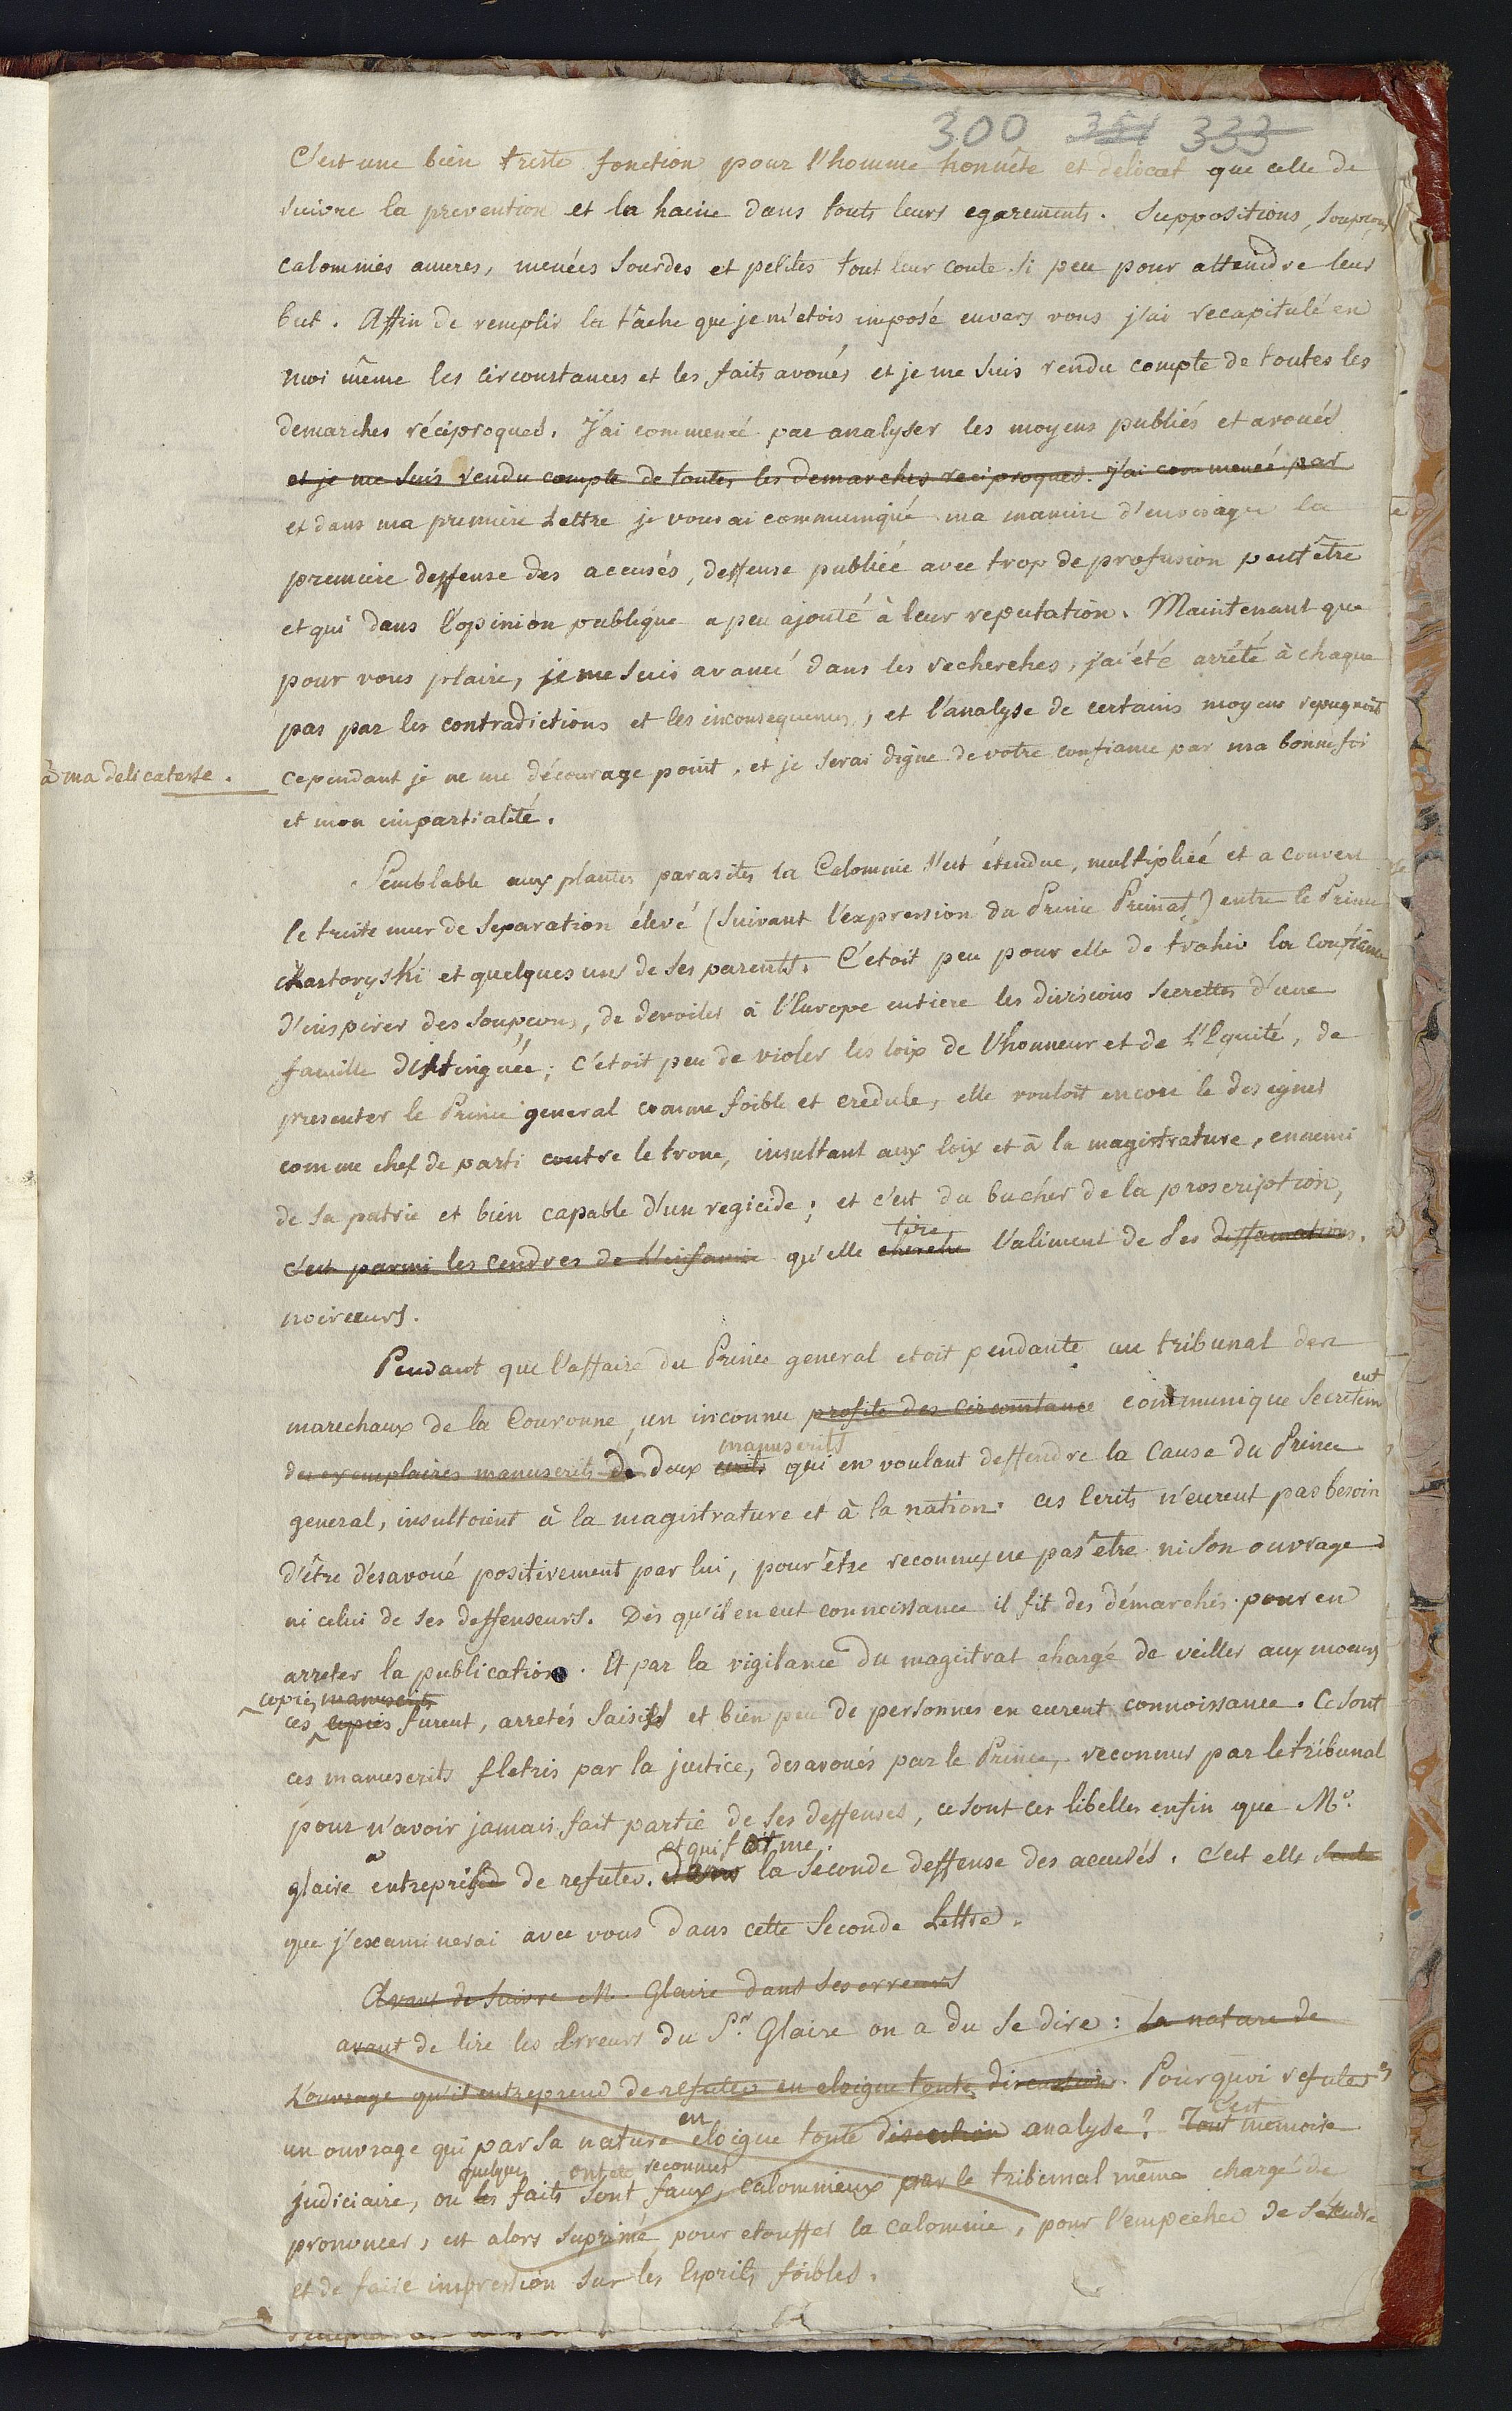 300 351 333
C'est une bien triste fonction pour l'homme honnête et delicat que celle de
suivre la prevention et la haine dans touts leurs egarements. Suppositions, soupçons
calomnies ameres, menées sourdes et petites tout leur coute si peu pour atteindre leur
but. Affin de remplir la tâche que je m'etois imposé envers vous j'ai recapitulé en
moi même les circonstances et les faits avoués et je me suis rendu compte de toutes les
demarches réciproques. J'ai commencé par analyser les moyens publiés et avoués
et je me suis rendu compte de toutes les demarches reciproques. J'ai commencé par
et dans ma premiere Lettre je vous ai communiqué ma maniere d'envisager la
premiere deffense des accusés, deffense publiée avec trop de profusion peut être
et qui dans l'opinion publique a peu ajouté à leur reputation. Maintenant que
pour vous plaire, je me suis avancé dans les recherches, j'ai été arrêté à chaque
pas par les contradictions et les inconsequences, et l'analyse de certains moyens repugnoit
à ma delicatesse.
cependant je ne me décourage point, et je serai digne de votre confiance par ma bonne foi
et mon impartialité.
Semblable aux plantes parasites la Calomnie s'est étendue, multipliée et a couvert
le triste mur de Separation élevé (suivant l'expression du Prince Primat) entre le Prince
Czartoryski et quelques uns de ses parents. C'etoit peu pour elle de trahir la confiance
d'inspirer des soupçons, de devoiler à l'Europe entiere les divisions secrettes d'une
famille distinguée; c'etoit peu de violer les loix de l'honneur et de l'Equité, de
presenter le Prince general comme foible et credule, elle vouloit encore le designer
comme chef de parti contre le trone, insultant aux loix et à la magistrature, ennemi
de sa patrie et bien capable d'un regicide; et c'est du bucher de la proscription,
tire
c'est parmi les cendres de l'infamie qu'elle cherche l'aliment de ses diffamations.
noirceurs.
Pendant que l'affaire du Prince general etoit pendante au tribunal des
marechaux de la Couronne, un inconnu profite des circonstance communique secretement
manuscrits
des exemplaires manuscrits de deux ecrits qui en voulant deffendre la cause du Prince
general, insultoient à la magistrature et à la nation. ces Ecrits n'eurent pas besoin
d'être désavoué positivement par lui, pour être reconnus ne pas être ni son ouvrage
ni celui de ses deffenseurs. Dès qu'il en eut connoissance il fit des démarches pour en
arreter la publication. Et par la vigilance du magistrat chargé de veiller aux moeurs
copies manuscrits
ces copies furent, arretés saisis et bien peu de personnes en eurent connoissance. Ce sont
ces manuscrits fletris par la justice, desavoués par le Prince, reconnus par le tribunal
pour n'avoir jamais fait partie de ses deffenses, ce sont ces libelles enfin que Mr.
a et qui forme
glaire entreprised de refuter. dans la seconde deffense des accusés. c'est elle seule
que j'examinerai avec vous dans cette seconde Lettre.
Avant de suivre M. Glaire dans ses erreurs
avant de lire les Erreurs du Sr. Glaire on a du se dire: La nature de
L'ouvrage qu'il entreprend de refuter en eloigne toute discution. Pourquoi refuter
en C'est
un ouvrage qui par sa nature eloigne toute discution analyse? Tout memoire
quelques ont été reconnus
judiciaire, ou les faits sont faux, calomnieux par le tribunal même chargé de
prononcer, est alors suprimé pour etouffer la calomnie, pour l'empecher de s'etendre
et de faire impression sur les Esprits foibles.